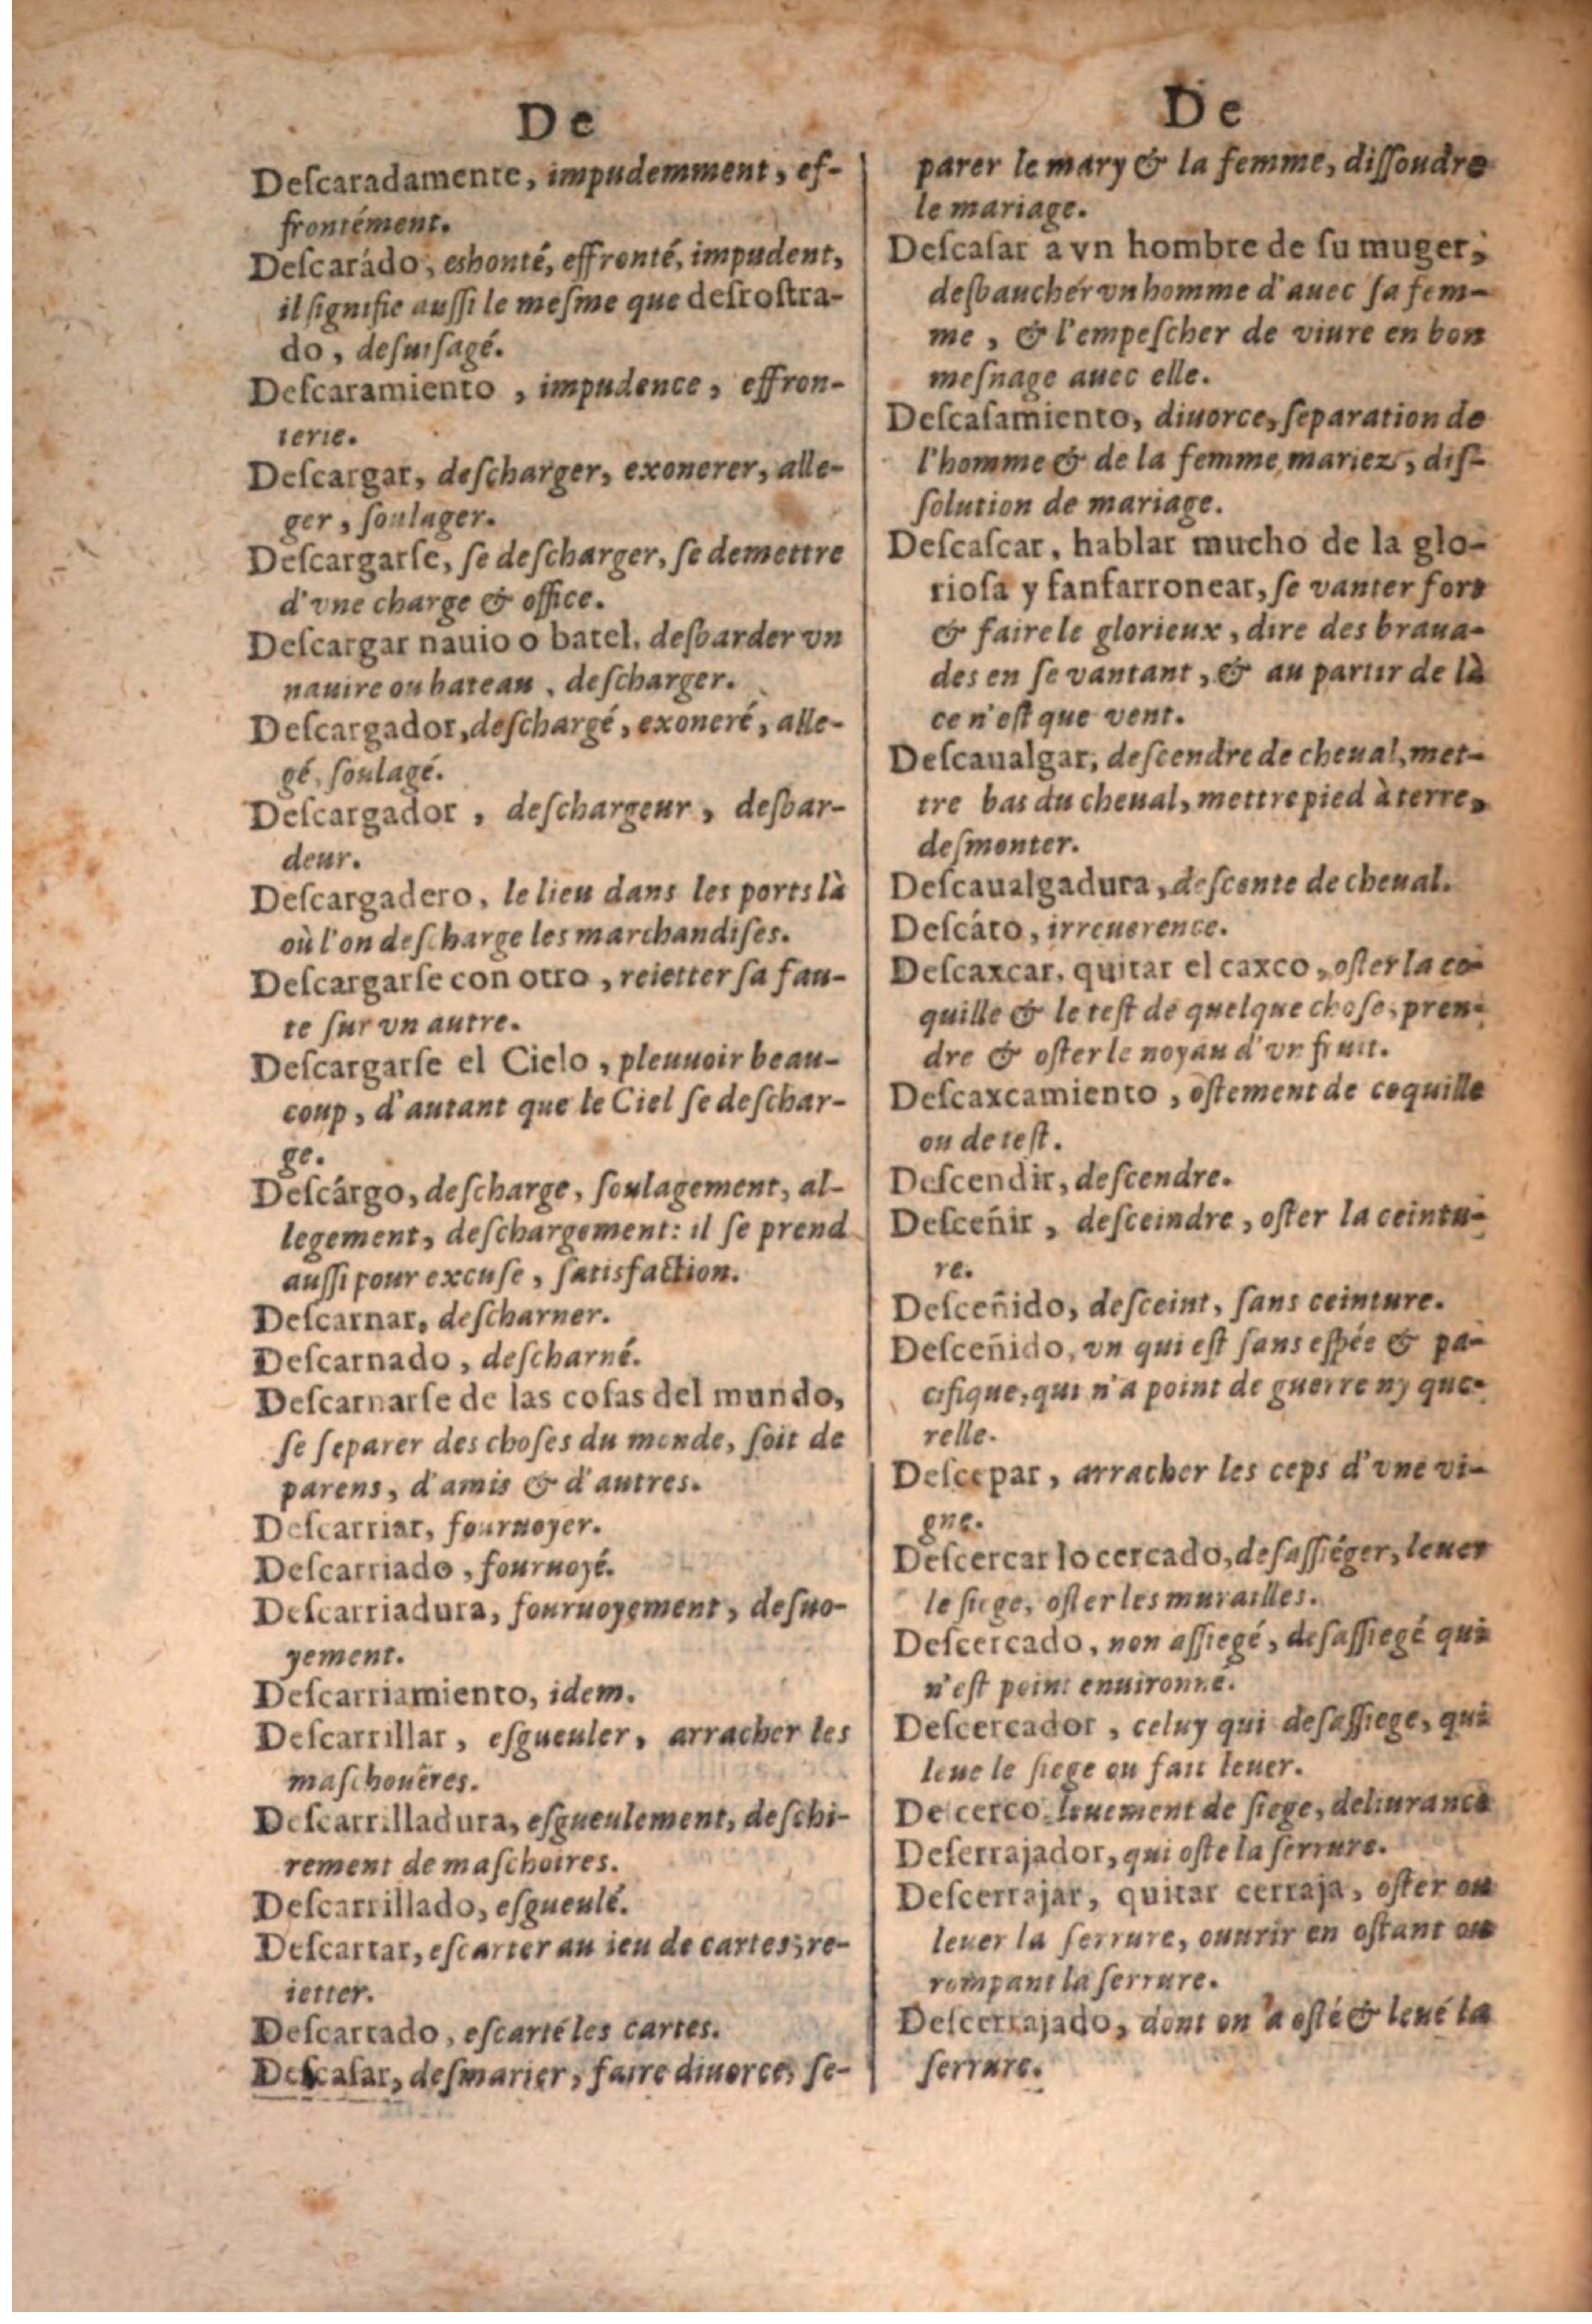 De
Deſcaradamente, impudemment, ef-
frontément.
Deſcarádo, eshonté, effronté, impudent,
il ſignifie auſſi le meſme que deſroſtra-
do, deſuiſagé.
Deſcaramiento, impudence, effron-
terie.
Deſcargar, deſcharger, exonerer, alle-
ger, ſoulager.
Deſcargarſe, ſe deſcharger, ſe demettre
d'vne charge & office.
Deſcargar nauio o batel, desbarder vn
nauire ou bateau, deſcharger.
Deſcargador, deſchargé, exoneré, alle-
gé, ſoulagé.
Deſcargador, deſchargeur, desbar-
deur.
Deſcargadero, le lieu dans les ports là
où l'on deſcharge les marchandiſes.
Deſcargarſe con otro, reietter ſa fau-
te ſur vn autre.
Deſcargarſe el Cielo, pleuuoir beau-
coup, d'autant que le Ciel ſe deſchar-
ge.
Deſcárgo, deſcharge, ſoulagement, al-
legement, deſchargement: il ſe prend
auſſi pour excuſe, ſatisfaction.
Deſcarnar, deſcharner.
Deſcarnado, deſcharné.
Deſcarnarſe de las coſas del mundo,
ſe ſeparer des choſes du monde, ſoit de
parens, d'amis & d'autres.
Deſcarriar, fouruoyer.
Deſcarriado, fouruoyé.
Deſcarriadura, fouruoyement, deſuo-
yement.
Deſcarriamiento, idem.
Deſcarrillar, eſgueuler, arracher les
maſchoueres.
Deſcarrilladura, eſgueulement, deſchi-
rement de maſchoires.
Deſcarrillado, eſgueulé.
Deſcartar, eſcarter au ieu de cartes, re-
ietter.
Deſcartado, eſcarté les cartes.
Deſcaſar, deſmarier, faire diuorce, ſe-
De
parer le mary & la femme, diſſoudre
le mariage.
Deſcaſar a vn hombre de ſu muger,
desbaucher vn homme d'auec ſa fem-
me, & l'empeſcher de viure en bon
meſnage auec elle.
Deſcaſamiento, diuorce, ſeparation de
l'homme & de la femme mariez, diſ-
ſolution de mariage.
Deſcaſcar, hablar mucho de la glo-
rioſa y fanfarronear, ſe vanter fort
& faire le glorieux, dire des braua-
des en ſe vantant, & au partir de là
ce n'eſt que vent.
Deſcaualgar, deſcendre de cheual, met-
tre bas du cheual, mettre pied à terre,
deſmonter.
Deſcaualgadura, deſcente de cheual.
Deſcáto, irreuerence.
Deſcaxcar, quitar el caxco, oſter la co-
quille & le teſt de quelque choſe, pren-
dre & oſter le noyau d'vn fruit.
Deſcaxcamiento, oſtement de coquille
ou de teſt.
Deſcendir, deſcendre.
Deſceñir, deſceindre, oſter la ceintu-
re.
Deſceñido, deſceint, ſans ceinture.
Deſceñido, vn qui eſt ſans eſpée & pa-
cifique, qui n'a point de guerre ny que-
relle.
Deſcepar, arracher les ceps d'vne vi-
gne.
Deſcercar lo cercado, deſaſſiéger, leuer
le ſiege, oſter les murailles.
Deſcercado, non aſſiegé, deſaſſiegé qui
n'eſt point enuironné.
Deſcercador, celuy qui deſaſſiege, qui
leue le ſiege ou fait leuer.
De cerco leuement de ſiege, deliurance
Deſerrajador, qui oſte la ſerrure.
Deſcerrajar, quitar cerraja, oſter ou
leuer la ſerrure, ouurir en oſtant ou
rompant la ſerrure.
Deſcerrajado, dont on a oſté & leué la
ſerrure.